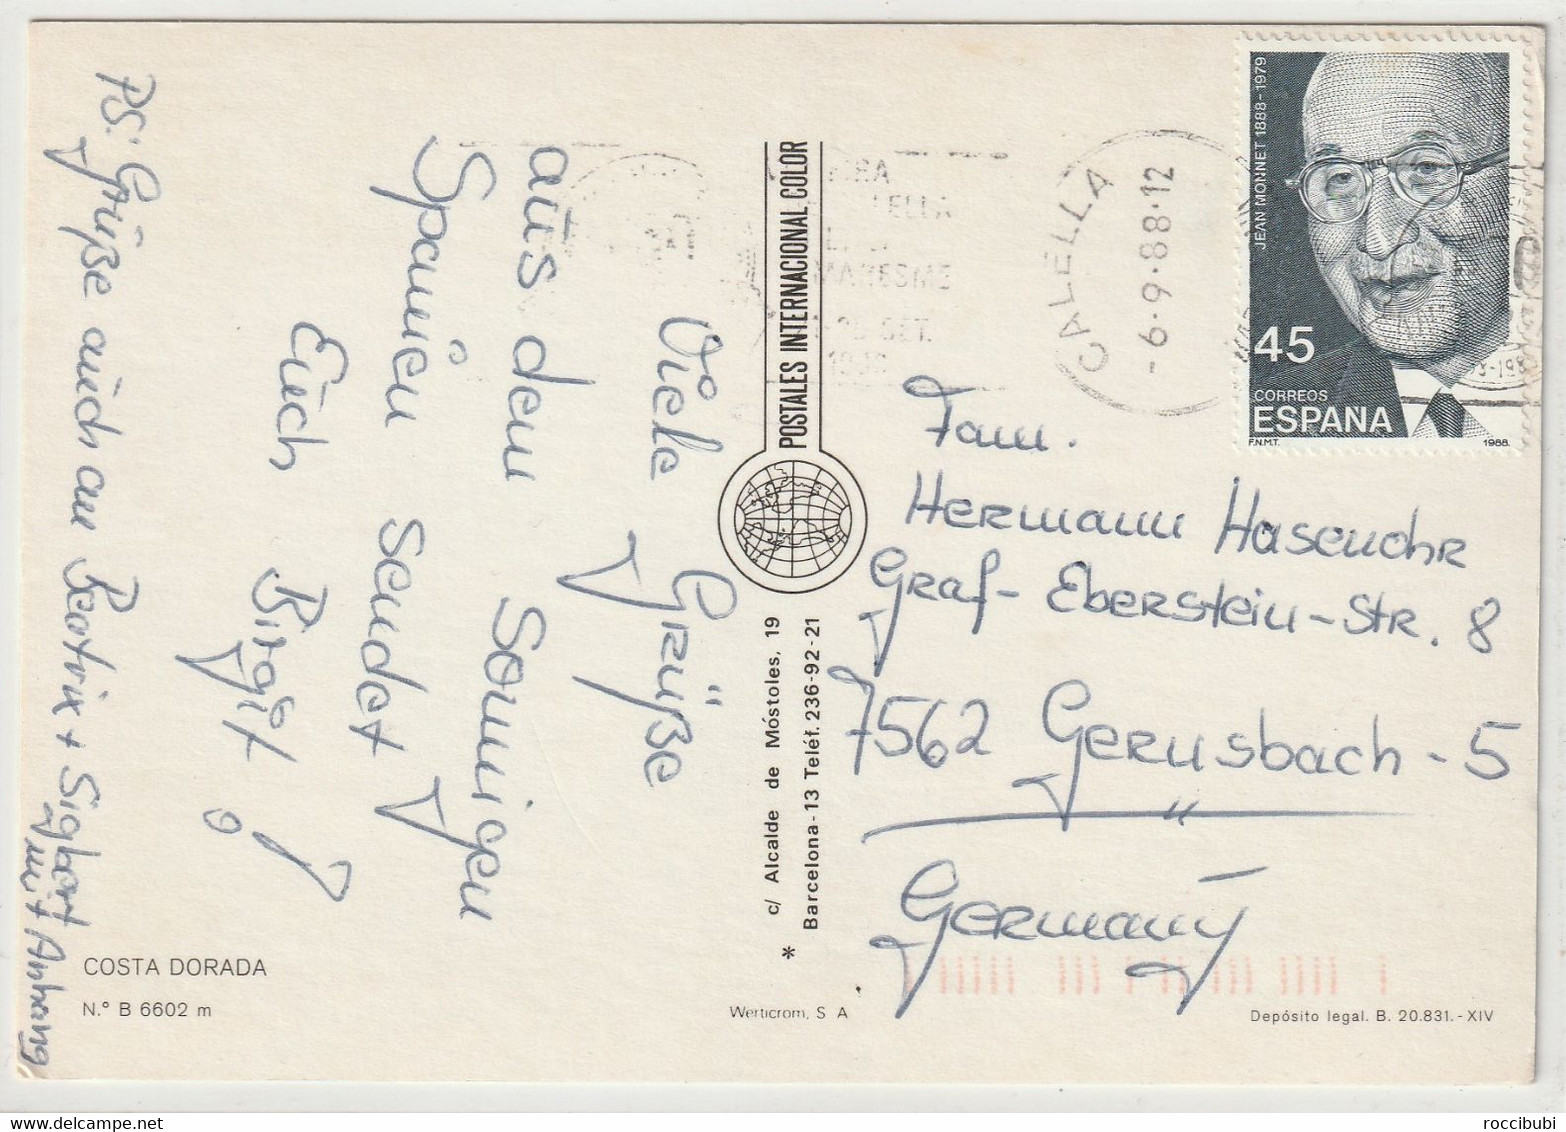 Viele Grüße
aus dem Sonnigen
Spanien sendet
Euch Birgit!
PS: Grüße auch an Beatrix + Sigbert
mit Anhang
COSTA DORADA
N.° B 6602 m
POSTALES INTERNACIONAL COLOR
c/ Alcalde de Móstoles, 19
* Barcelona-13 Teléf. 236-92-21
Werticrom, S A
CALELLA
-6·9·88·12
MARESME
JEAN MONNET 1888-1979
45
CORREOS
ESPAÑA
F.N.M.T. 1988
Fam.
Hermann Hasenohr
Graf-Eberstein-Str. 8
7562 Gernsbach-5
Germany
Depósito legal. B. 20.831.-XIV
roccibubi